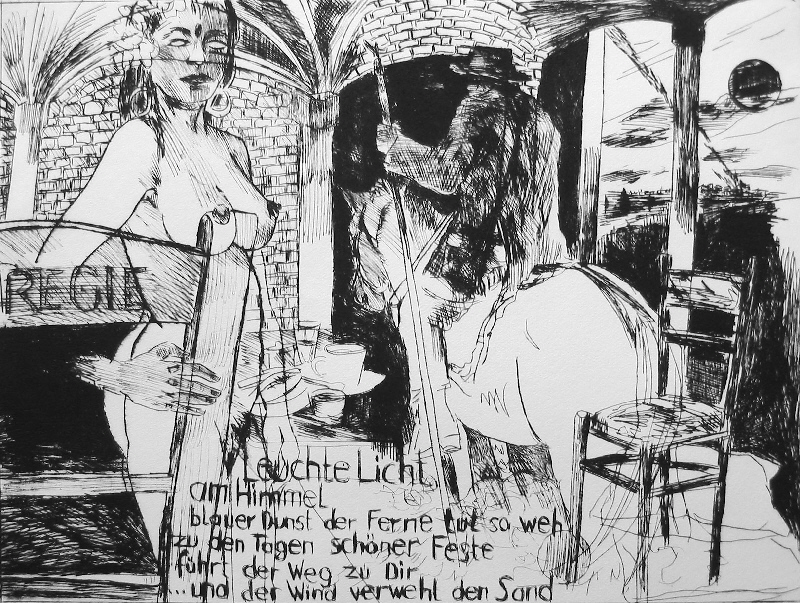 REGIE
Leuchte Licht
am Himmel
blauer Dunst der Ferne tut so weh
zu den Tagen schöner Feste
führt der Weg zu Dir
...und der Wind verweht den Sand